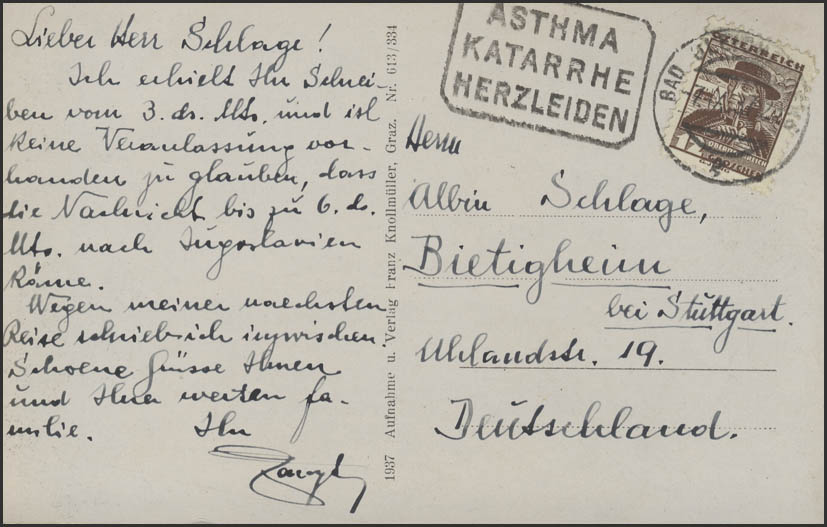 Lieber Herr Schlage!
Ich erhielt Ihr Schrei-
ben vom 3. ds. Mts. und ist
keine Veranlassung vor-
handen zu glauben, dass
die Nachricht bis zu 6. ds.
Mts. nach Jugoslavien
käme.
Wegen meiner naechsten
Reise schrieb ich inzwischen.
Schoene Grüsse Ihnen
und Ihrer werten Fa-
milie. Ihr
1937 Aufnahme u. Verlag Franz Knollmüller, Graz. Nr. 613/334
ASTHMA
KATARRHE
HERZLEIDEN
BAD
ÖSTERREICH
Herrn
Albin Schlage,
Bietigheim
bei Stuttgart.
Uhlandstr. 19.
Deutschland.